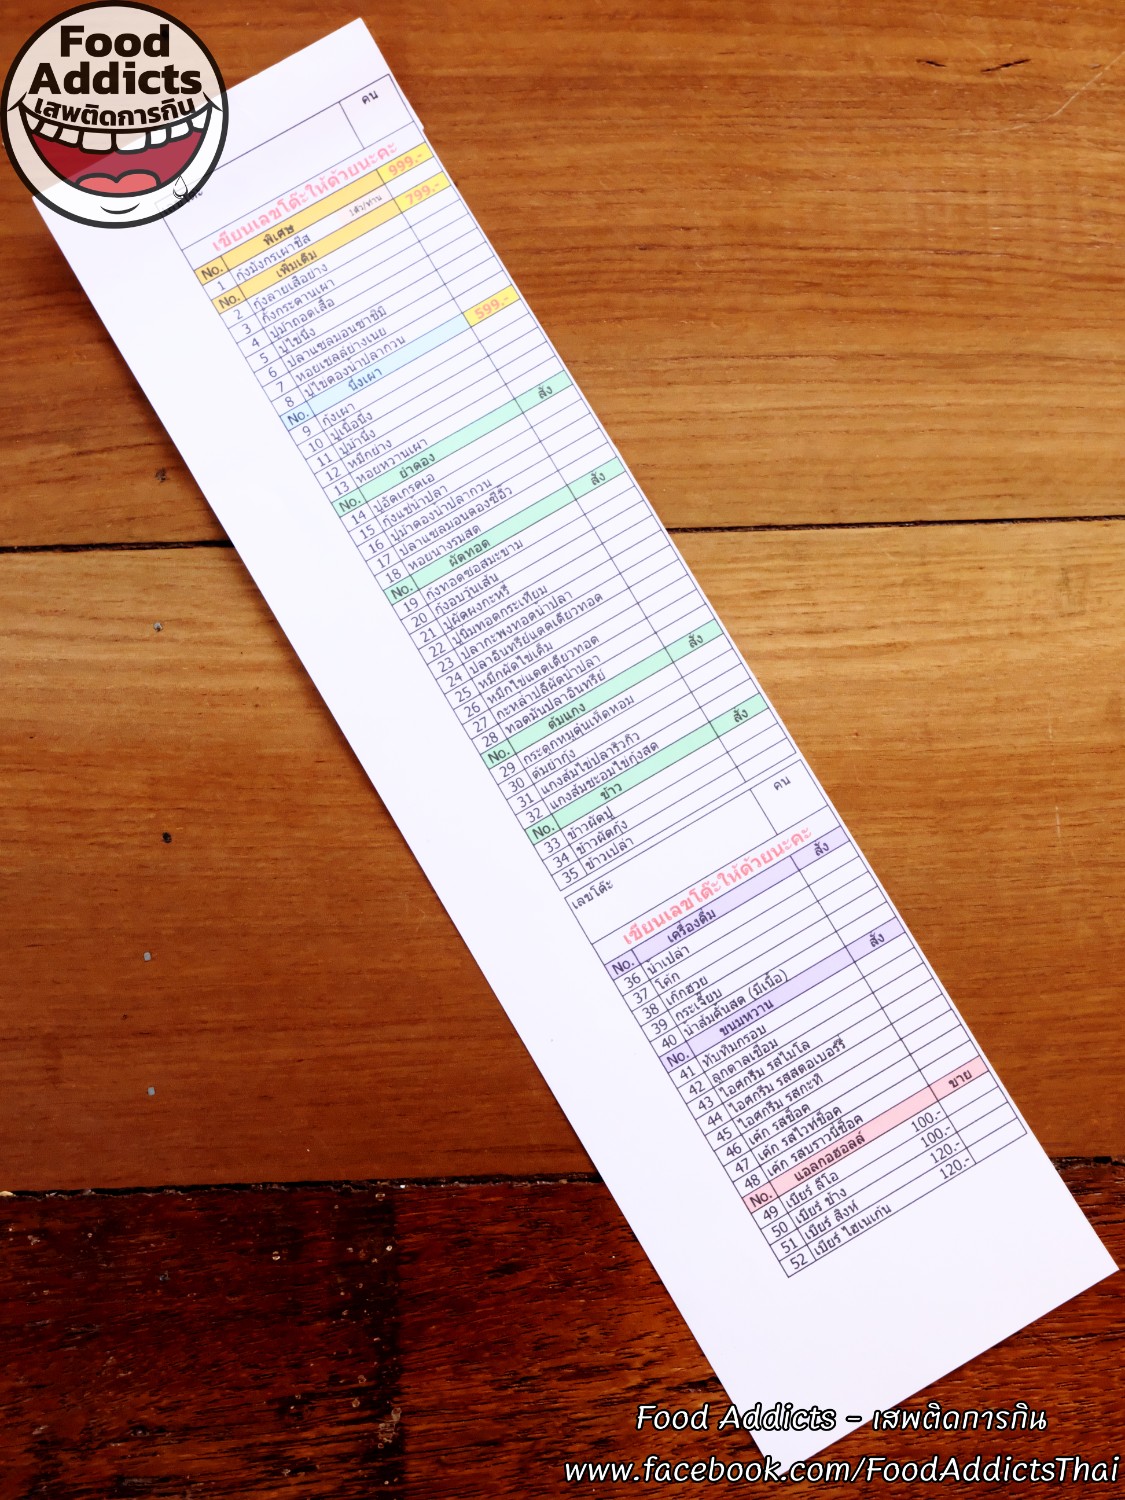 Food
Addicts
เสพติดการกิน
คน
เขียนเลขโต๊ะให้ด้วยนะคะ
No. พิเศษ 999.-
1 กุ้งมังกรเผาชีส 1ตัว/ท่าน
No. เพิ่มเติม 799.-
2 กุ้งลายเสือย่าง
3 กั้งกระดานเผา
4 ปูม้าถอดเสื้อ
5 ปูไข่นึ่ง
6 ปลาแซลมอนซาซิมิ
7 หอยเชลล์ย่างเนย
8 ปูไข่ดองน้ำปลากวน
No. นึ่งเผา 599.-
9 กุ้งเผา
10 ปูเนื้อนึ่ง
11 ปูม้านึ่ง
12 หมึกย่าง
13 หอยหวานเผา
No. ยำดอง สั่ง
14 ปูอัดเกรดเอ
15 กุ้งแช่น้ำปลา
16 ปูม้าดองน้ำปลากวน
17 ปลาแซลมอนดองซีอิ๊ว
18 หอยนางรมสด
No. ผัดทอด สั่ง
19 กุ้งทอดซอสมะขาม
20 กุ้งอบวุ้นเส้น
21 ปูผัดผงกะหรี่
22 ปูนิ่มทอดกระเทียม
23 ปลากะพงทอดน้ำปลา
24 ปลาอินทรีย์แดดเดียวทอด
25 หมึกผัดไข่เค็ม
26 หมึกไข่แดดเดียวทอด
27 กะหล่ำปลีผัดน้ำปลา
28 ทอดมันปลาอินทรีย์
No. ต้มแกง สั่ง
29 กระดูกหมูตุ๋นเห็ดหอม
30 ต้มยำกุ้ง
31 แกงส้มไข่ปลาริวกิว
32 แกงส้มชะอมไข่กุ้งสด
No. ข้าว สั่ง
33 ข้าวผัดปู
34 ข้าวผัดกุ้ง
35 ข้าวเปล่า
เลขโต๊ะ คน
เขียนเลขโต๊ะให้ด้วยนะคะ
No. เครื่องดื่ม สั่ง
36 น้ำเปล่า
37 โค้ก
38 เก๊กฮวย
39 กระเจี๊ยบ
40 น้ำส้มคั้นสด (มีเนื้อ)
No. ขนมหวาน สั่ง
41 ทับทิมกรอบ
42 ลูกตาลเชื่อม
43 ไอศกรีม รสไมโล
44 ไอศกรีม รสสตอเบอร์รี่
45 ไอศกรีม รสกะทิ
46 เค้ก รสช็อค
47 เค้ก รสไวท์ช็อค
48 เค้ก รสบราวนี่ช็อค
No. แอลกอฮอลล์ ขาย
49 เบียร์ ลีโอ 100.-
50 เบียร์ ช้าง 100.-
51 เบียร์ สิงห์ 120.-
52 เบียร์ ไฮเนเก้น 120.-
Food Addicts - เสพติดการกิน
www.facebook.com/FoodAddictsThai